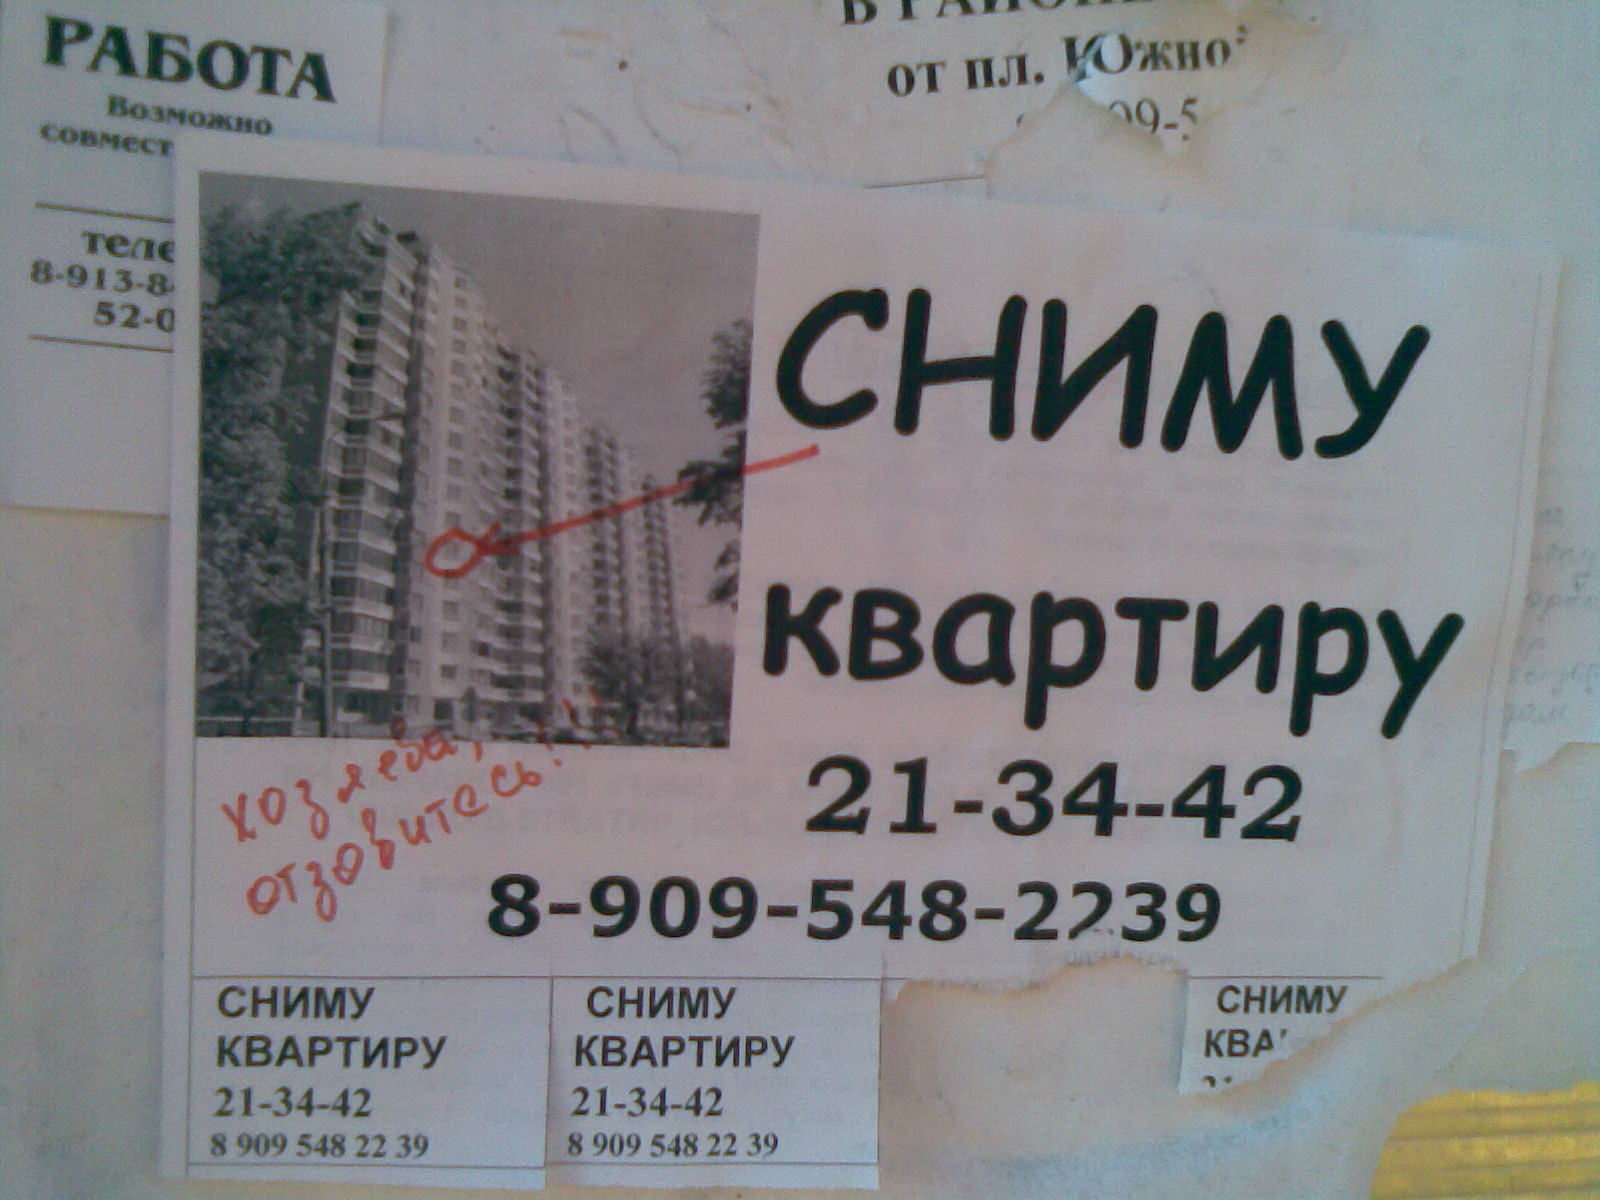 РАБОТА
Возможно
8-913-8
52-0
от пл.
СНИМУ
квартиру
21-34-42
8-909-548-2239
хозяева,
отзовитесь!!!
СНИМУ
КВАРТИРУ
21-34-42
8 909 548 22 39
СНИМУ
КВАРТИРУ
21-34-42
8 909 548 22 39
СНИМУ
КВА